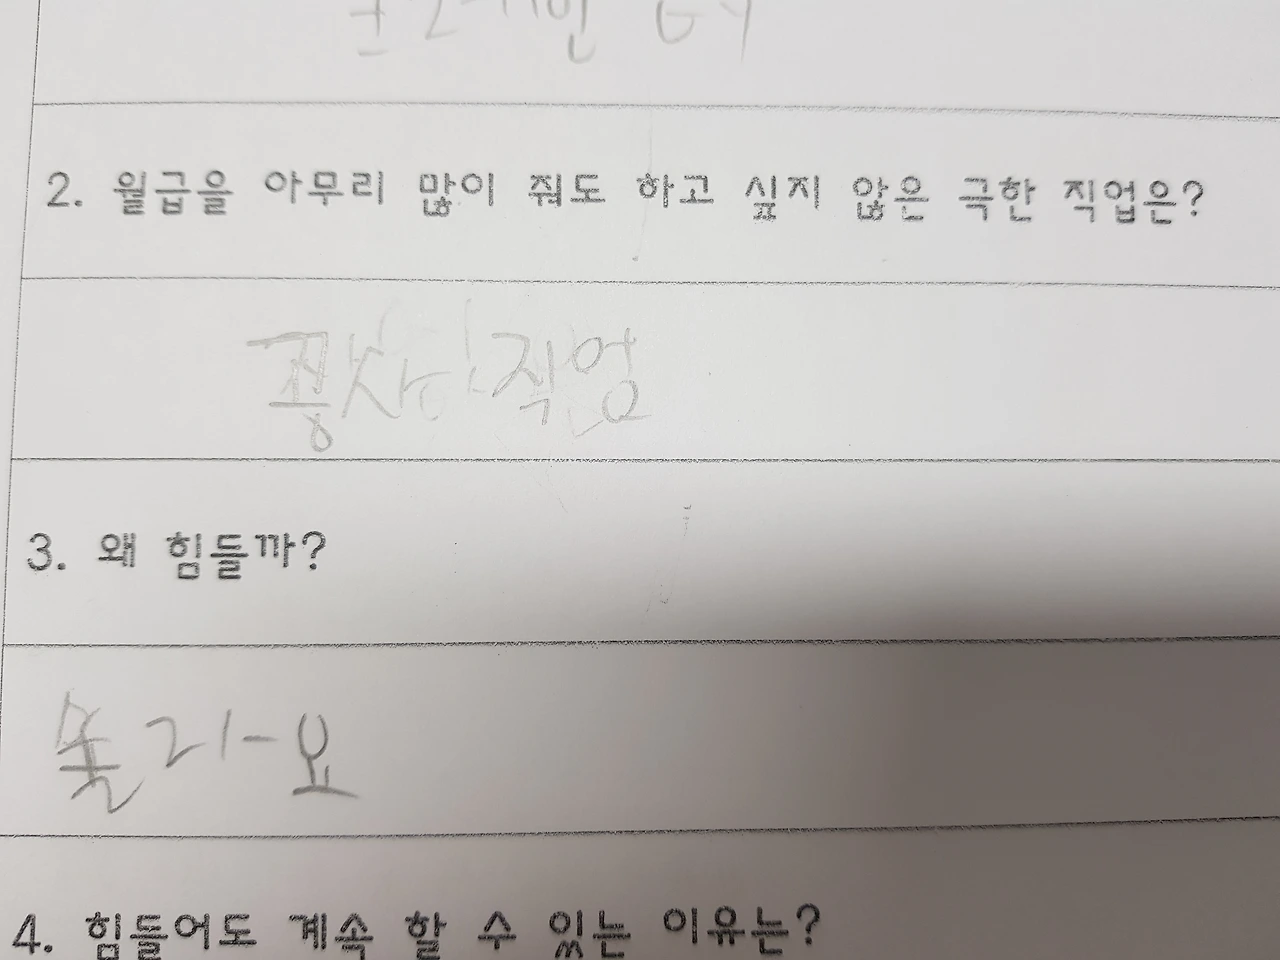 2. 월급을 아무리 많이 줘도 하고 싶지 않은 극한 직업은?
직업
3. 왜 힘들까?
졸려요
4. 힘들어도 계속 할 수 있는 이유는?